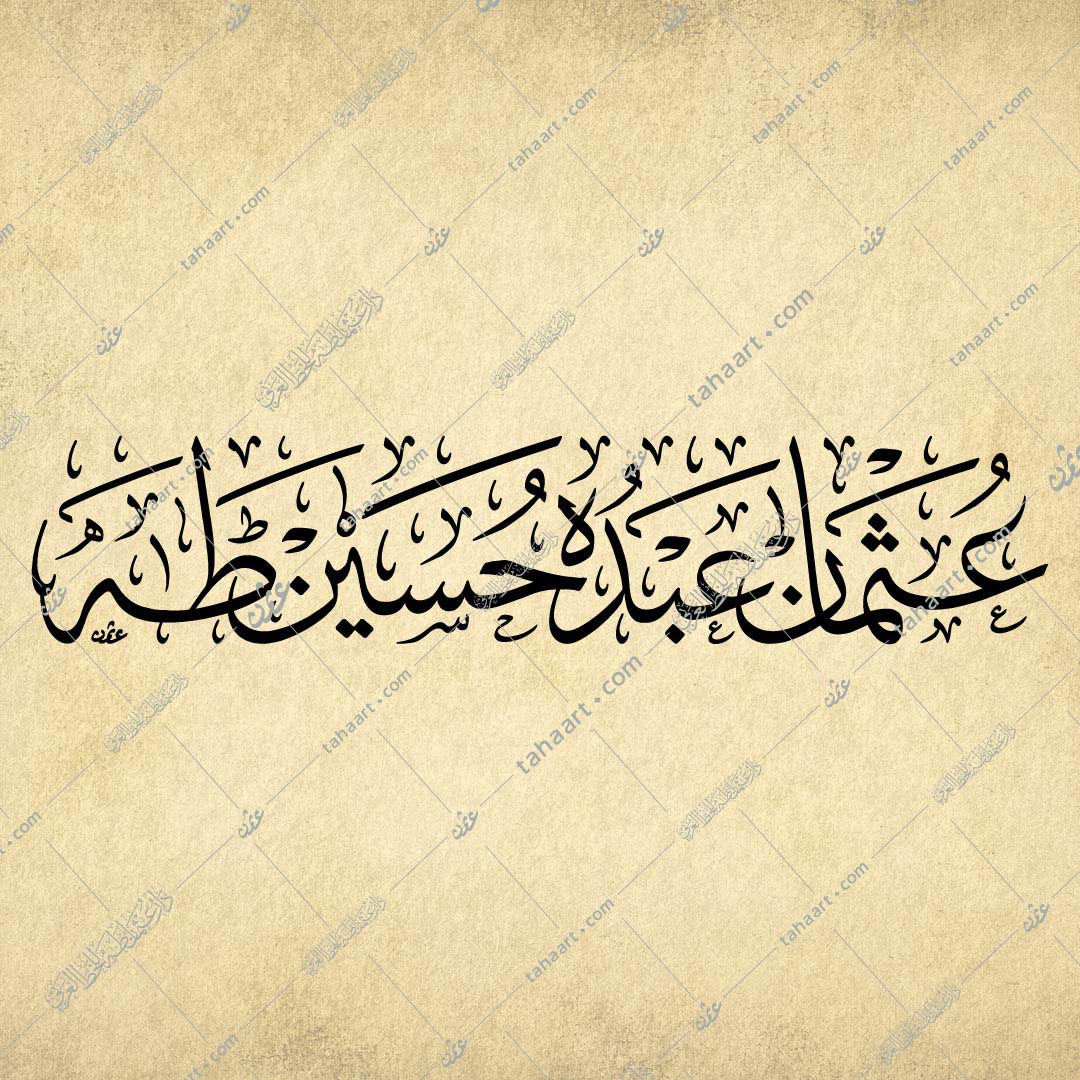 عُثْمَان عَبْدُه حُسَيْن طٰهٰ
عثمان
tahaart.com